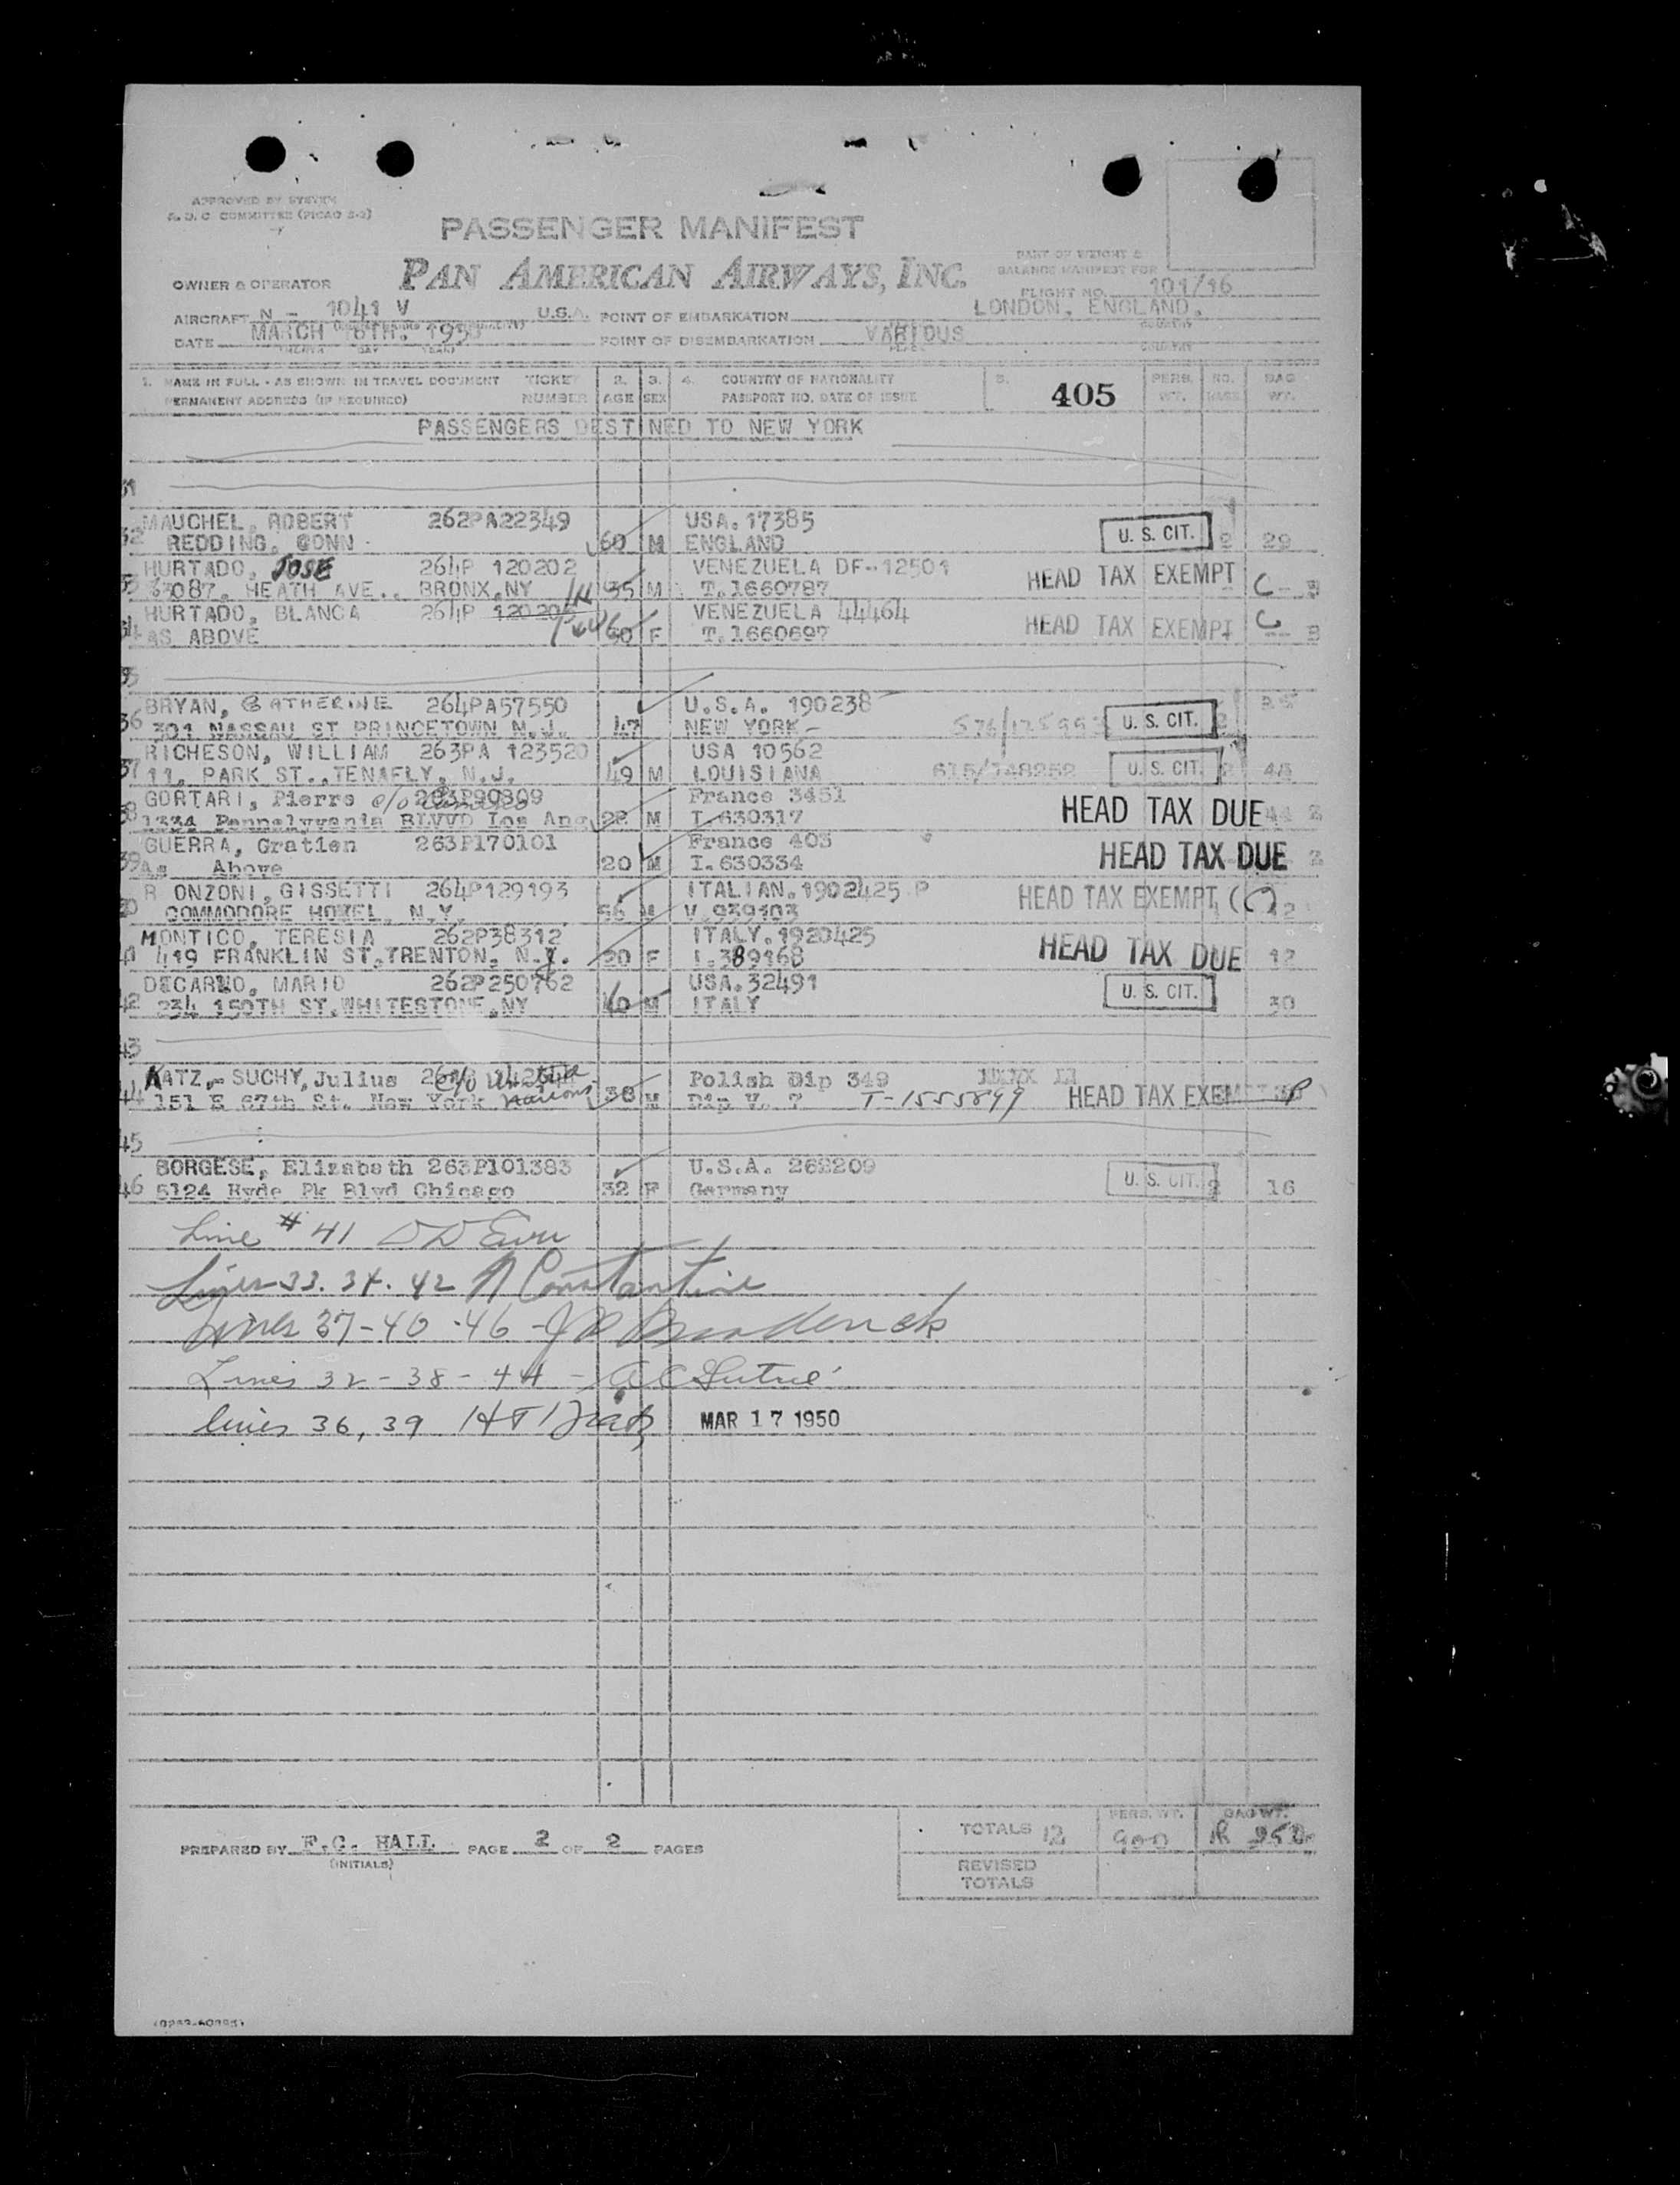 APPROVED BY SYSTEM
A. D. C. COMMITTEE (PICAO 2-2)
PASSENGER MANIFEST
PAN AMERICAN AIRWAYS, INC.
PART OF WEIGHT &
BALANCE MANIFEST FOR
OWNER & OPERATOR
FLIGHT NO. 101/16
AIRCRAFT N - 1041 V U.S.A. POINT OF EMBARKATION LONDON, ENGLAND.
DATE MARCH 16TH. 195 POINT OF DISEMBARKATION VARIOUS
MONTH DAY YEAR PLACE COUNTRY
1. NAME IN FULL - AS SHOWN IN TRAVEL DOCUMENT TICKET 2. 3. 4. COUNTRY OF NATIONALITY 5. 405 PERS. NO. BAG
PERMANENT ADDRESS (IF REQUIRED) NUMBER AGE SEX PASSPORT NO. DATE OF ISSUE WT. BAGS WT.
PASSENGERS DESTINED TO NEW YORK
31
MAUCHEL, ROBERT 262PA22349 USA. 17385
32 REDDING, CONN 60 M ENGLAND U. S. CIT. 2 29
HURTADO, JOSE 264P 120202 VENEZUELA DF-12501
33 3087, HEATH AVE., BRONX.NY 35 M T.1660787 HEAD TAX EXEMPT C
HURTADO, BLANCA 264P VENEZUELA 44464
34 AS ABOVE 60 F T.1660697 HEAD TAX EXEMPT C
35
BRYAN, CATHERINE 264PA57550 U.S.A. 190238
36 301 NASSAU ST PRINCETOWN N.J. 47 NEW YORK U. S. CIT. 2
RICHESON, WILLIAM 263PA 123520 USA 10562
37 11, PARK ST., TENAFLY, N.J. 49 M LOUISIANA 615/148252 U. S. CIT. 2
GORTARI, Pierre c/o 263P90809 France 3451
38 1334 Pennslyvania BLVVD Los Ang. 22 M I.630317 HEAD TAX DUE
GUERRA, Gratien 263P170101 France 403
39 As Above 20 M I.630334 HEAD TAX DUE
R ONZONI, GISSETTI 264P129193 ITALIAN.1902425 P
COMMODORE HOTEL, N.Y. 56 M V.939103 HEAD TAX EXEMPT (C)
MONTICO, TERESIA 262P38312 ITALY.1920425
419 FRANKLIN ST.TRENTON, N.J. 20 F I.389168 HEAD TAX DUE 12
DECARLO, MARIO 262P250762 USA.32491
42 234 150TH ST.WHITESTONE,NY 40 M ITALY U. S. CIT. 30
43
KATZ,- SUCHY, Julius c/o United Polish Dip 349
44 151 E 67th St. New York Nations 38 M Dip V. ? T-1555899 HEAD TAX EXEMPT
45
BORGESE, Elizabeth 263P101383 U.S.A. 262209
46 5124 Hyde Pk Blvd Chicago 32 F Germany U. S. CIT. 2 16
Line # 41
Lines 33. 34. 42 A Constantine
Lines 37-40-46 -
Lines 32-38-44 -
lines 36, 39 MAR 17 1950
TOTALS 12 PERS. WT. BAG WT.
PREPARED BY F.C. HALL PAGE 2 OF 2 PAGES
(INITIALS)
REVISED
TOTALS